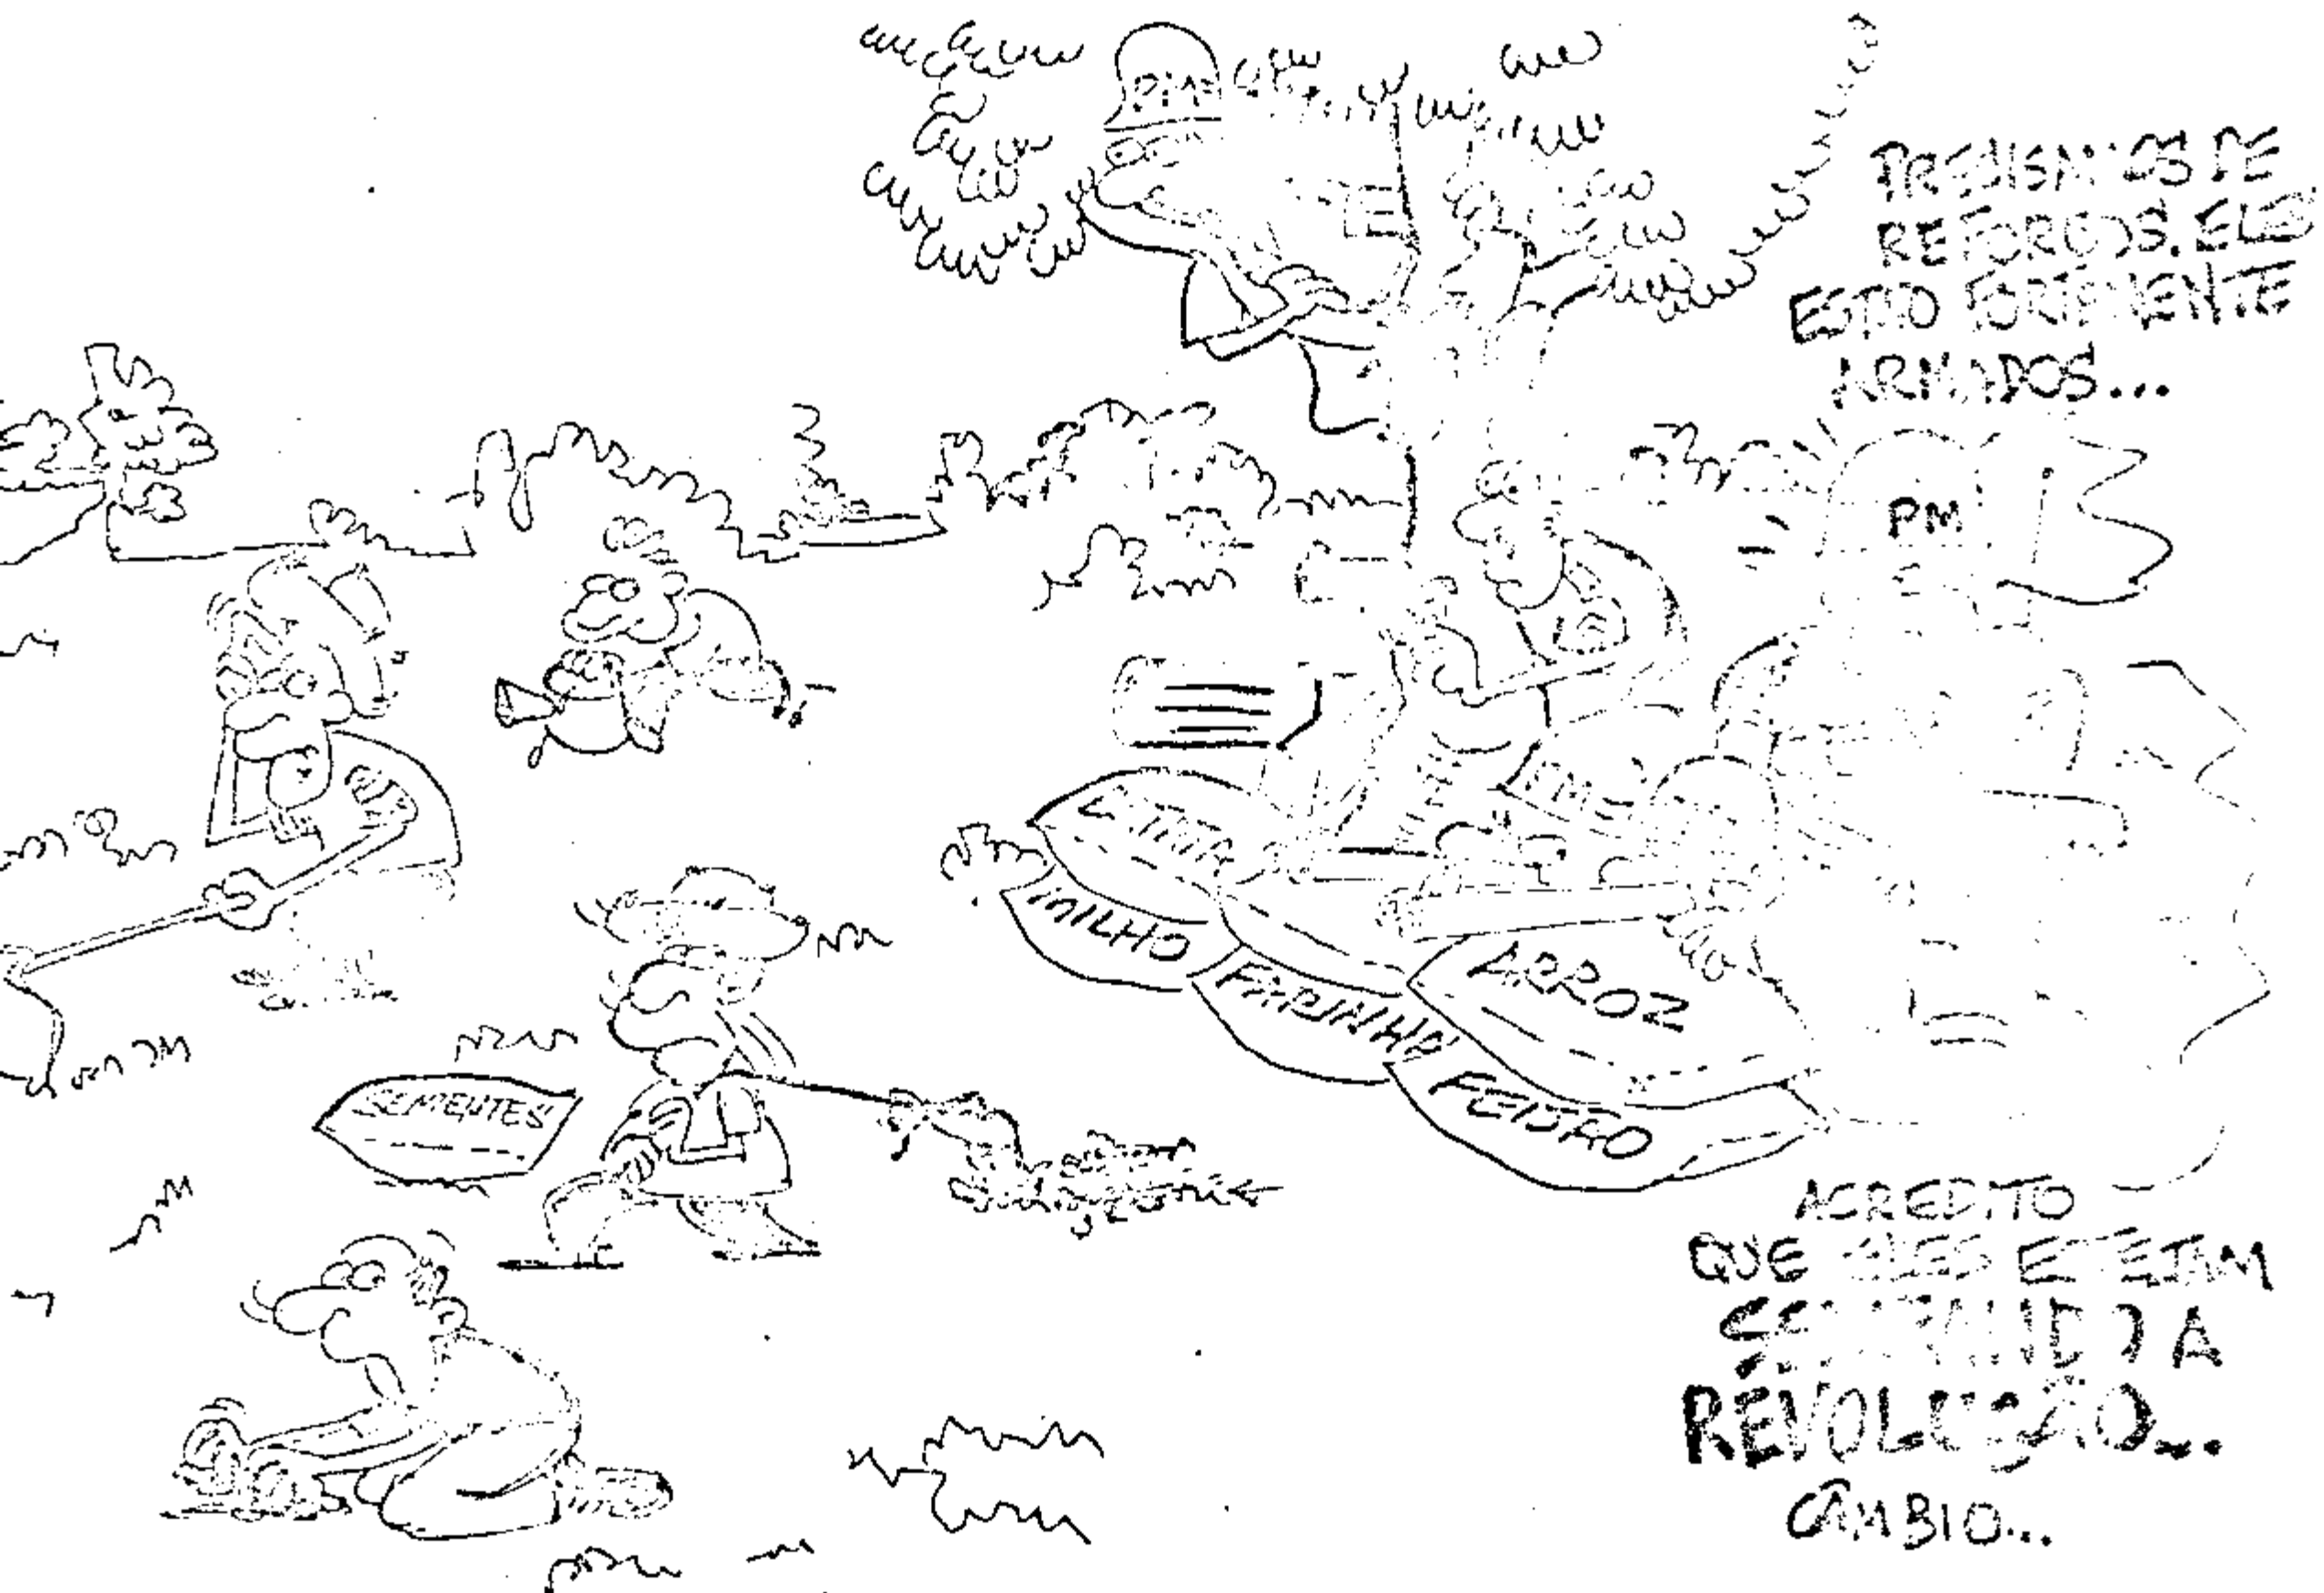 PRECISAMOS DE
REFORÇOS. ELES
ESTÃO FORTEMENTE
ARMADOS...
PM
PM
PM
MILHO
FARINHA
ARROZ
FEIJÃO
SEMENTES
ACREDITO
QUE ELES ESTEJAM
A
REVOLUÇÃO...
CÂMBIO...